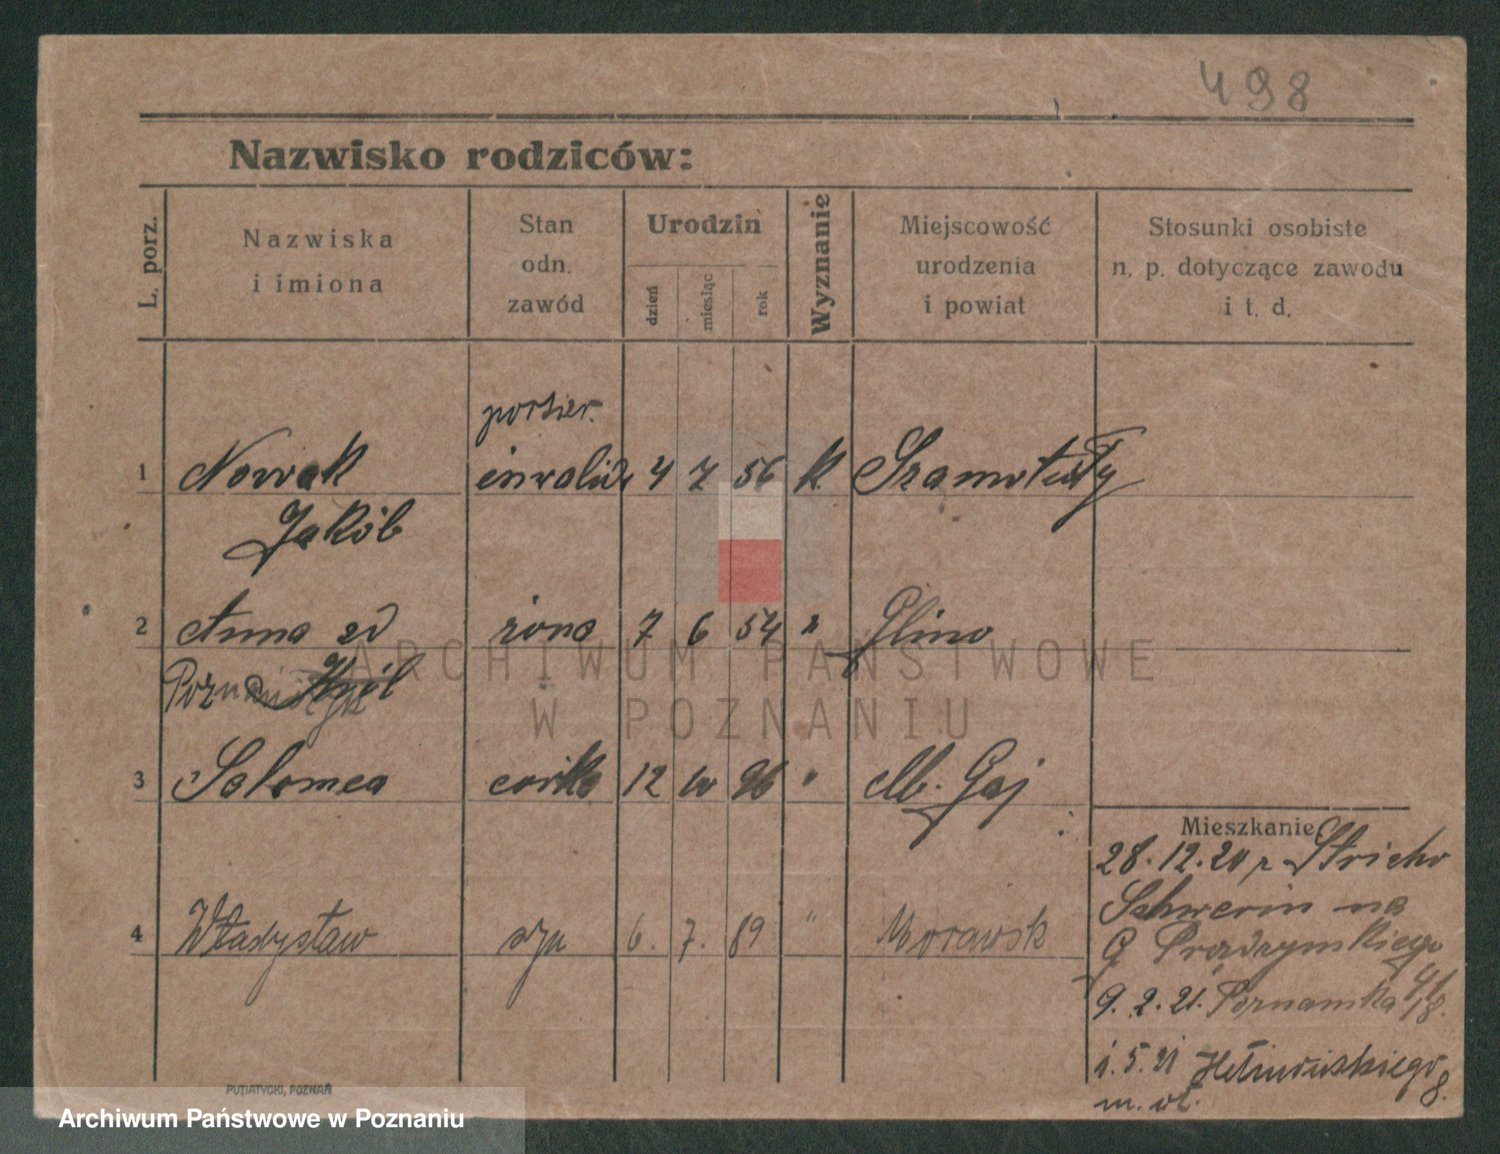 498
Nazwisko rodziców:
L. porz.
Nazwiska
i imiona
Stan
odn.
zawód
Urodzin
dzień
miesiąc
rok
Wyznanie
Miejscowość
urodzenia
i powiat
Stosunki osobiste
n. p. dotyczące zawodu
i t. d.
portier.
1 Nowak inwalid 4 7 56 k. Szamotuły
Jakób
2 Anna zd żona 7 6 54 " Glino
Król
3 Salomea córka 12 10 96 " M. Gaj
Mieszkanie
28.12.20 z
Schwerin na
G Prądzyńskiego
4 Władysław syn 6. 7. 89 " Morawsk
9.2.21. Poznańska 4/8.
1.5.21
8.
m. wł.
PUTIATYCKI, POZNAŃ
ARCHIWUM PAŃSTWOWE
W POZNANIU
Archiwum Państwowe w Poznaniu